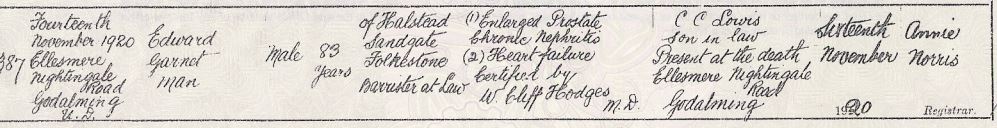 387
Fourteenth
November 1920
Ellesmere
Nightingale
Road
Godalming
U.D.
Edward
Garnet
Man
Male
83
Years
of Halstead
Sandgate
Folkestone
Barrister at Law
(1) Enlarged Prostate
Chronic Nephritis
(2) Heart failure
Certified by
W. Cliff Hodges
M.D.
C C Lowis
Son in law
Present at the death
Ellesmere Nightingale
Road
Godalming
Sixteenth
November
1920
Annie
Norris
Registrar.